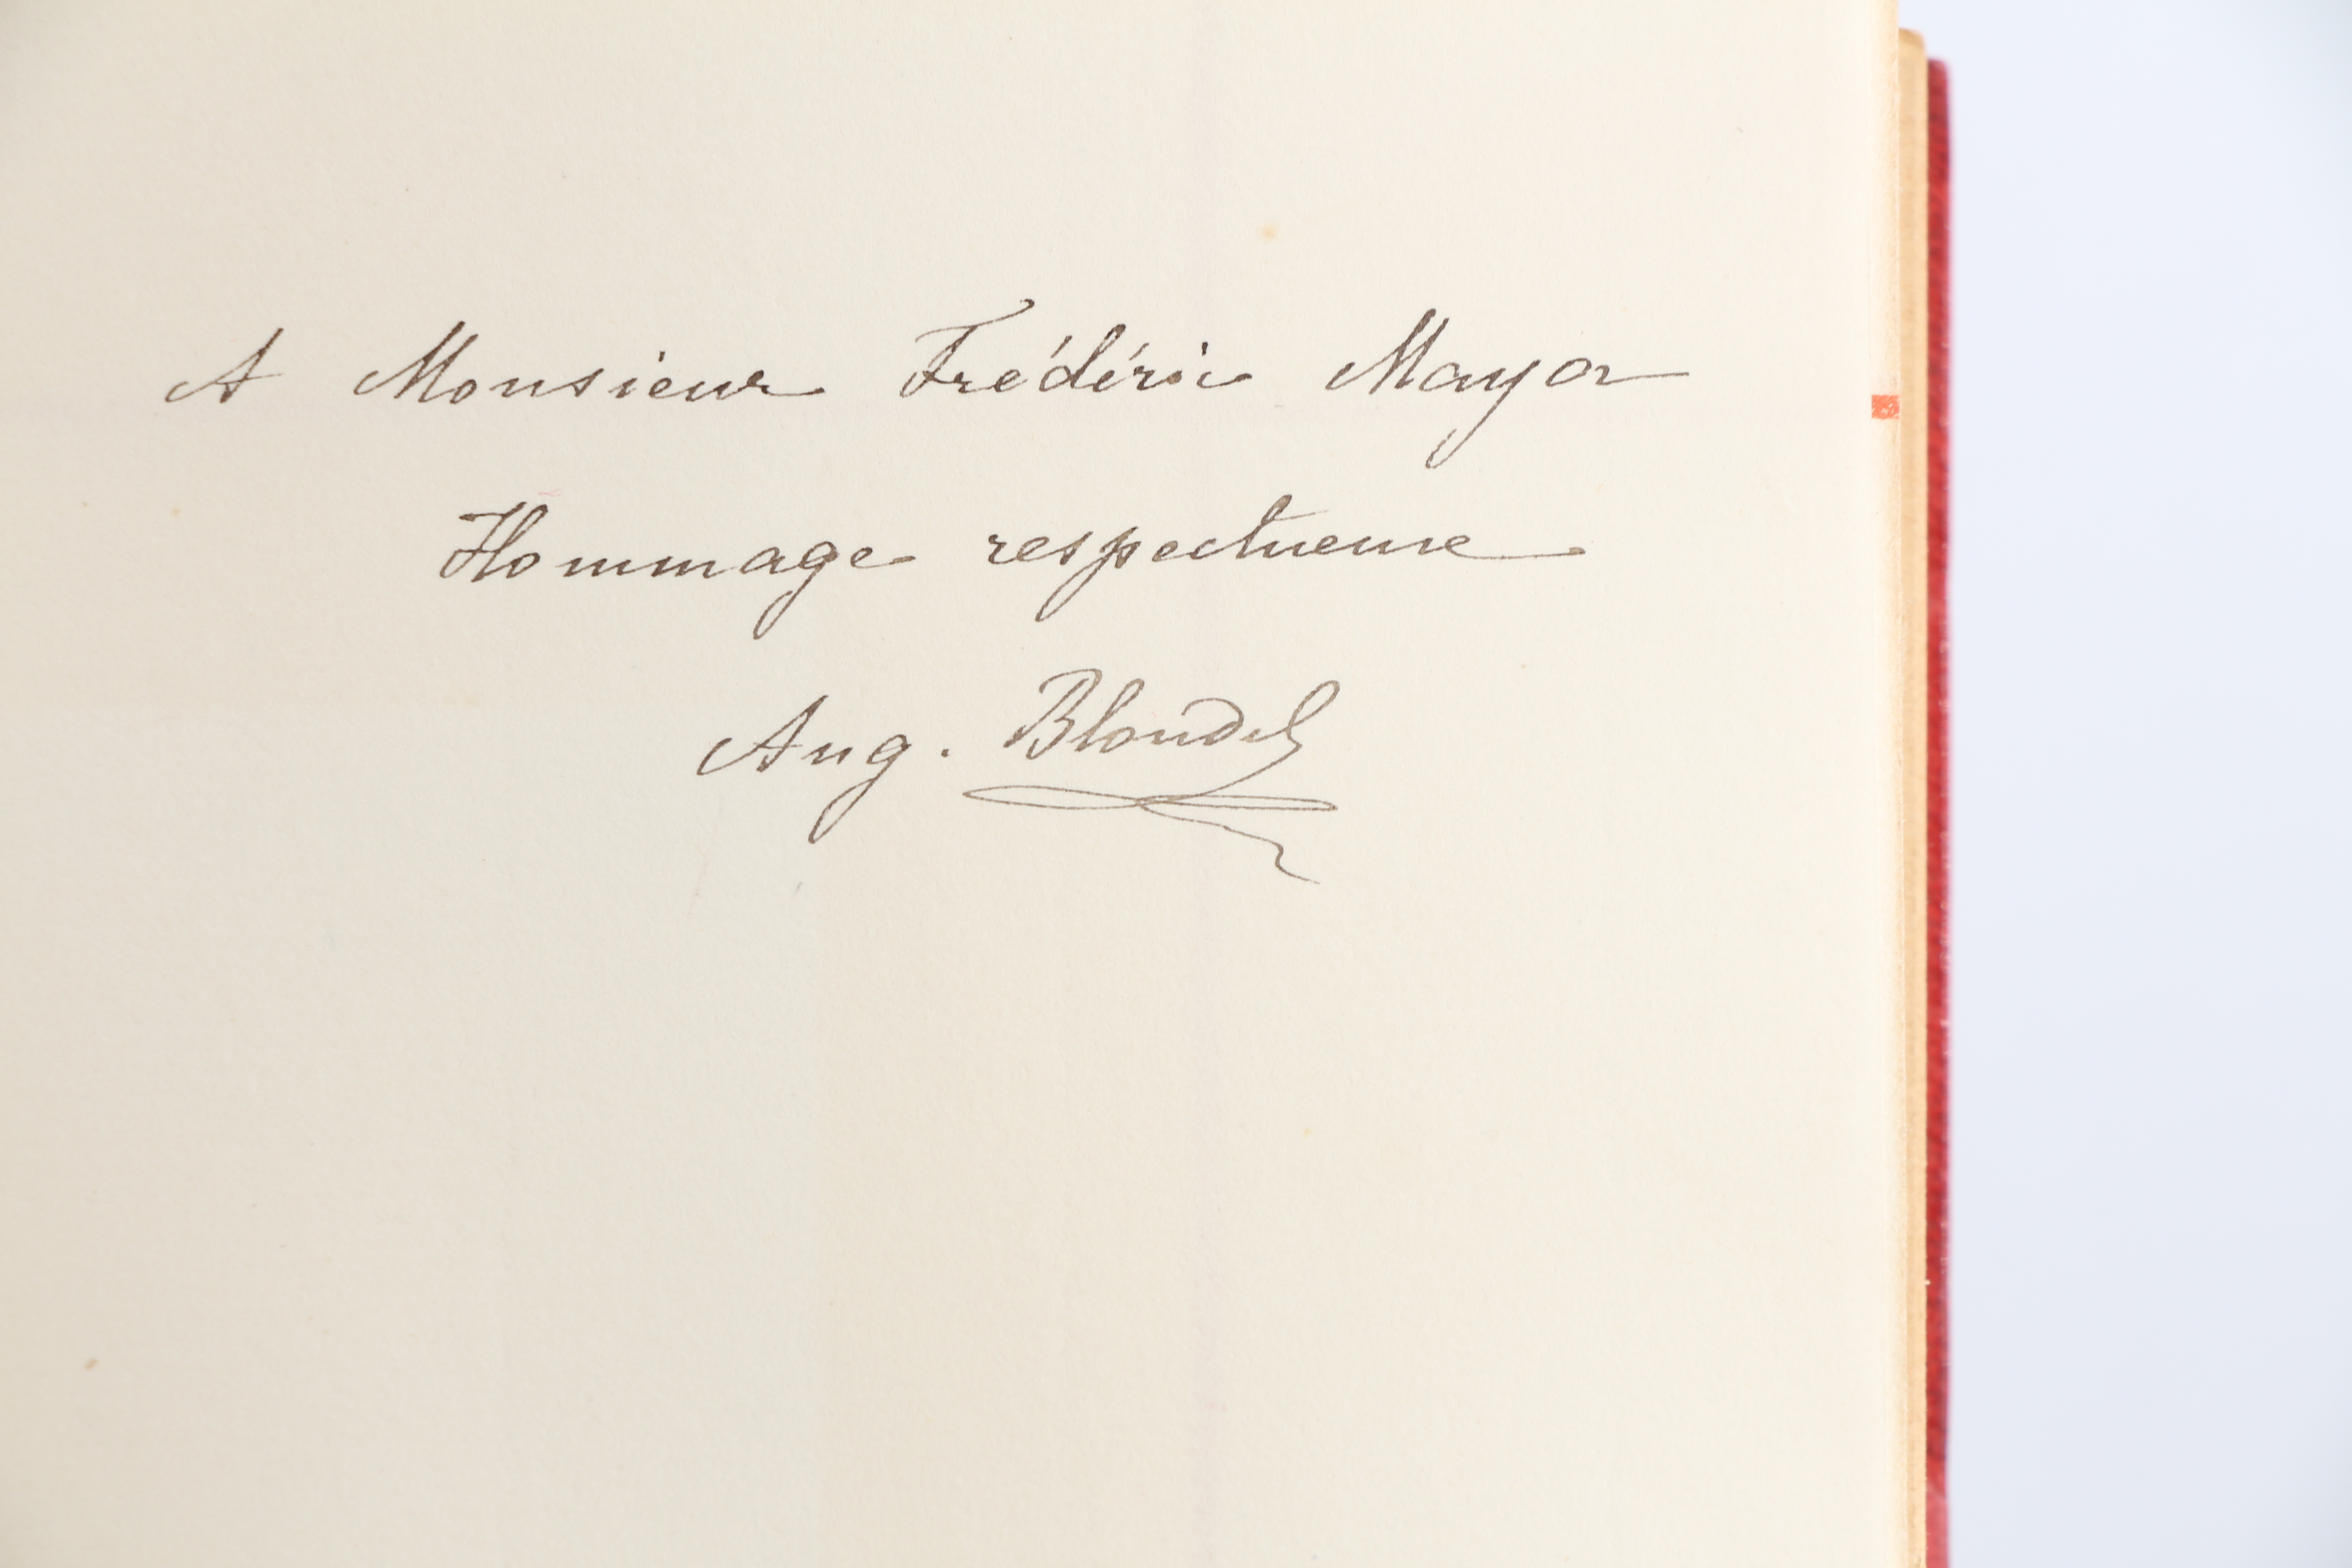 A Monsieur Frédéric Mayor
Hommage respectueux
Aug. Blondel